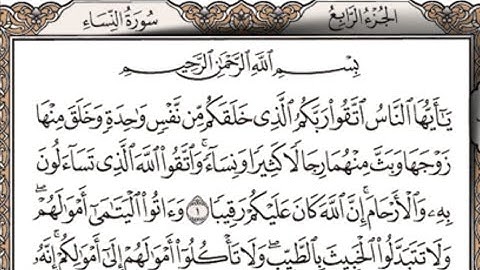 الجزء الرابع
سورة النساء
بسم الله الرحمن الرحيم
يَٰٓأَيُّهَا النَّاسُ اتَّقُوا رَبَّكُمُ الَّذِى خَلَقَكُم مِّن نَّفْسٍ وَٰحِدَةٍ وَخَلَقَ مِنْهَا
زَوْجَهَا وَبَثَّ مِنْهُمَا رِجَالًا كَثِيرًا وَنِسَآءً ۚ وَاتَّقُوا اللَّهَ الَّذِى تَسَآءَلُونَ
بِهِۦ وَالْأَرْحَامَ ۚ إِنَّ اللَّهَ كَانَ عَلَيْكُمْ رَقِيبًا ١ وَءَاتُوا الْيَتَٰمَىٰٓ أَمْوَٰلَهُمْ ۖ
وَلَا تَتَبَدَّلُوا الْخَبِيثَ بِالطَّيِّبِ ۖ وَلَا تَأْكُلُوٓا أَمْوَٰلَهُمْ إِلَىٰٓ أَمْوَٰلِكُمْ ۚ إِنَّهُۥ